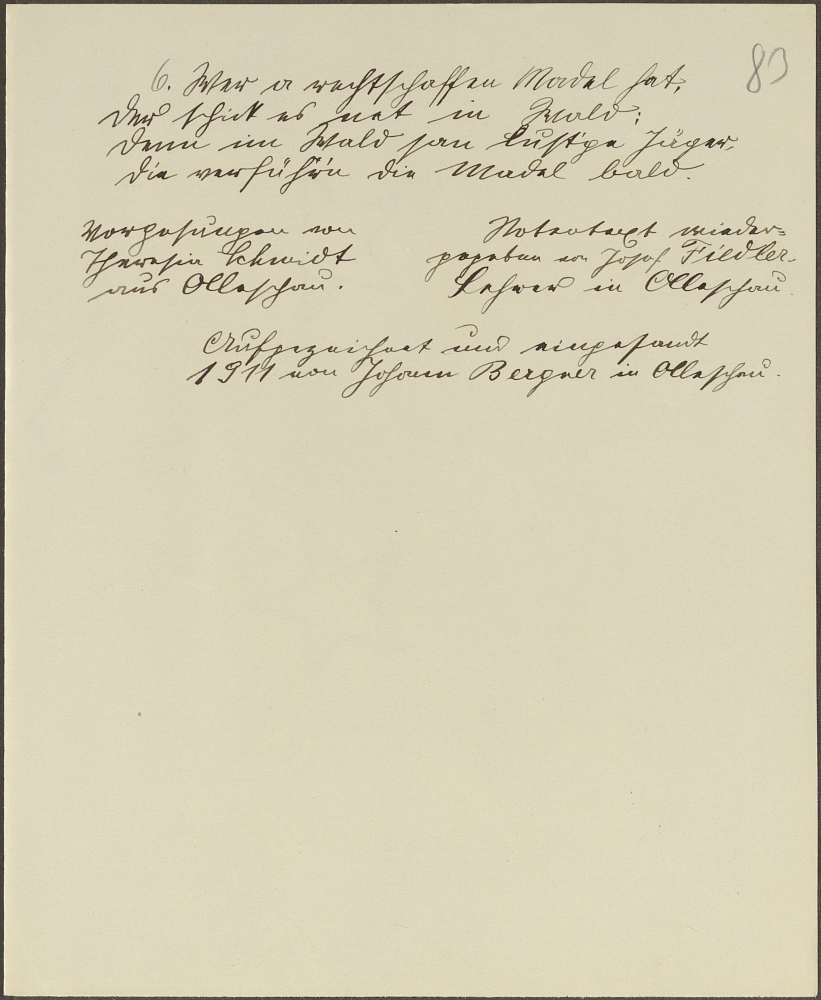 83
6. Wer a rechtschaffen Madel hat,
Der schick es net in Wald;
Denn im Wald san lustge Jäger,
Die verführ'n die Madel bald.
Vorgesungen von
Theresia Schmidt
aus Olleschau.
Notentext wieder=
gegeben von Josef Fiedler
Lehrer in Olleschau.
Aufgezeichnet und eingesandt
1911 von Johann Bergner in Olleschau.